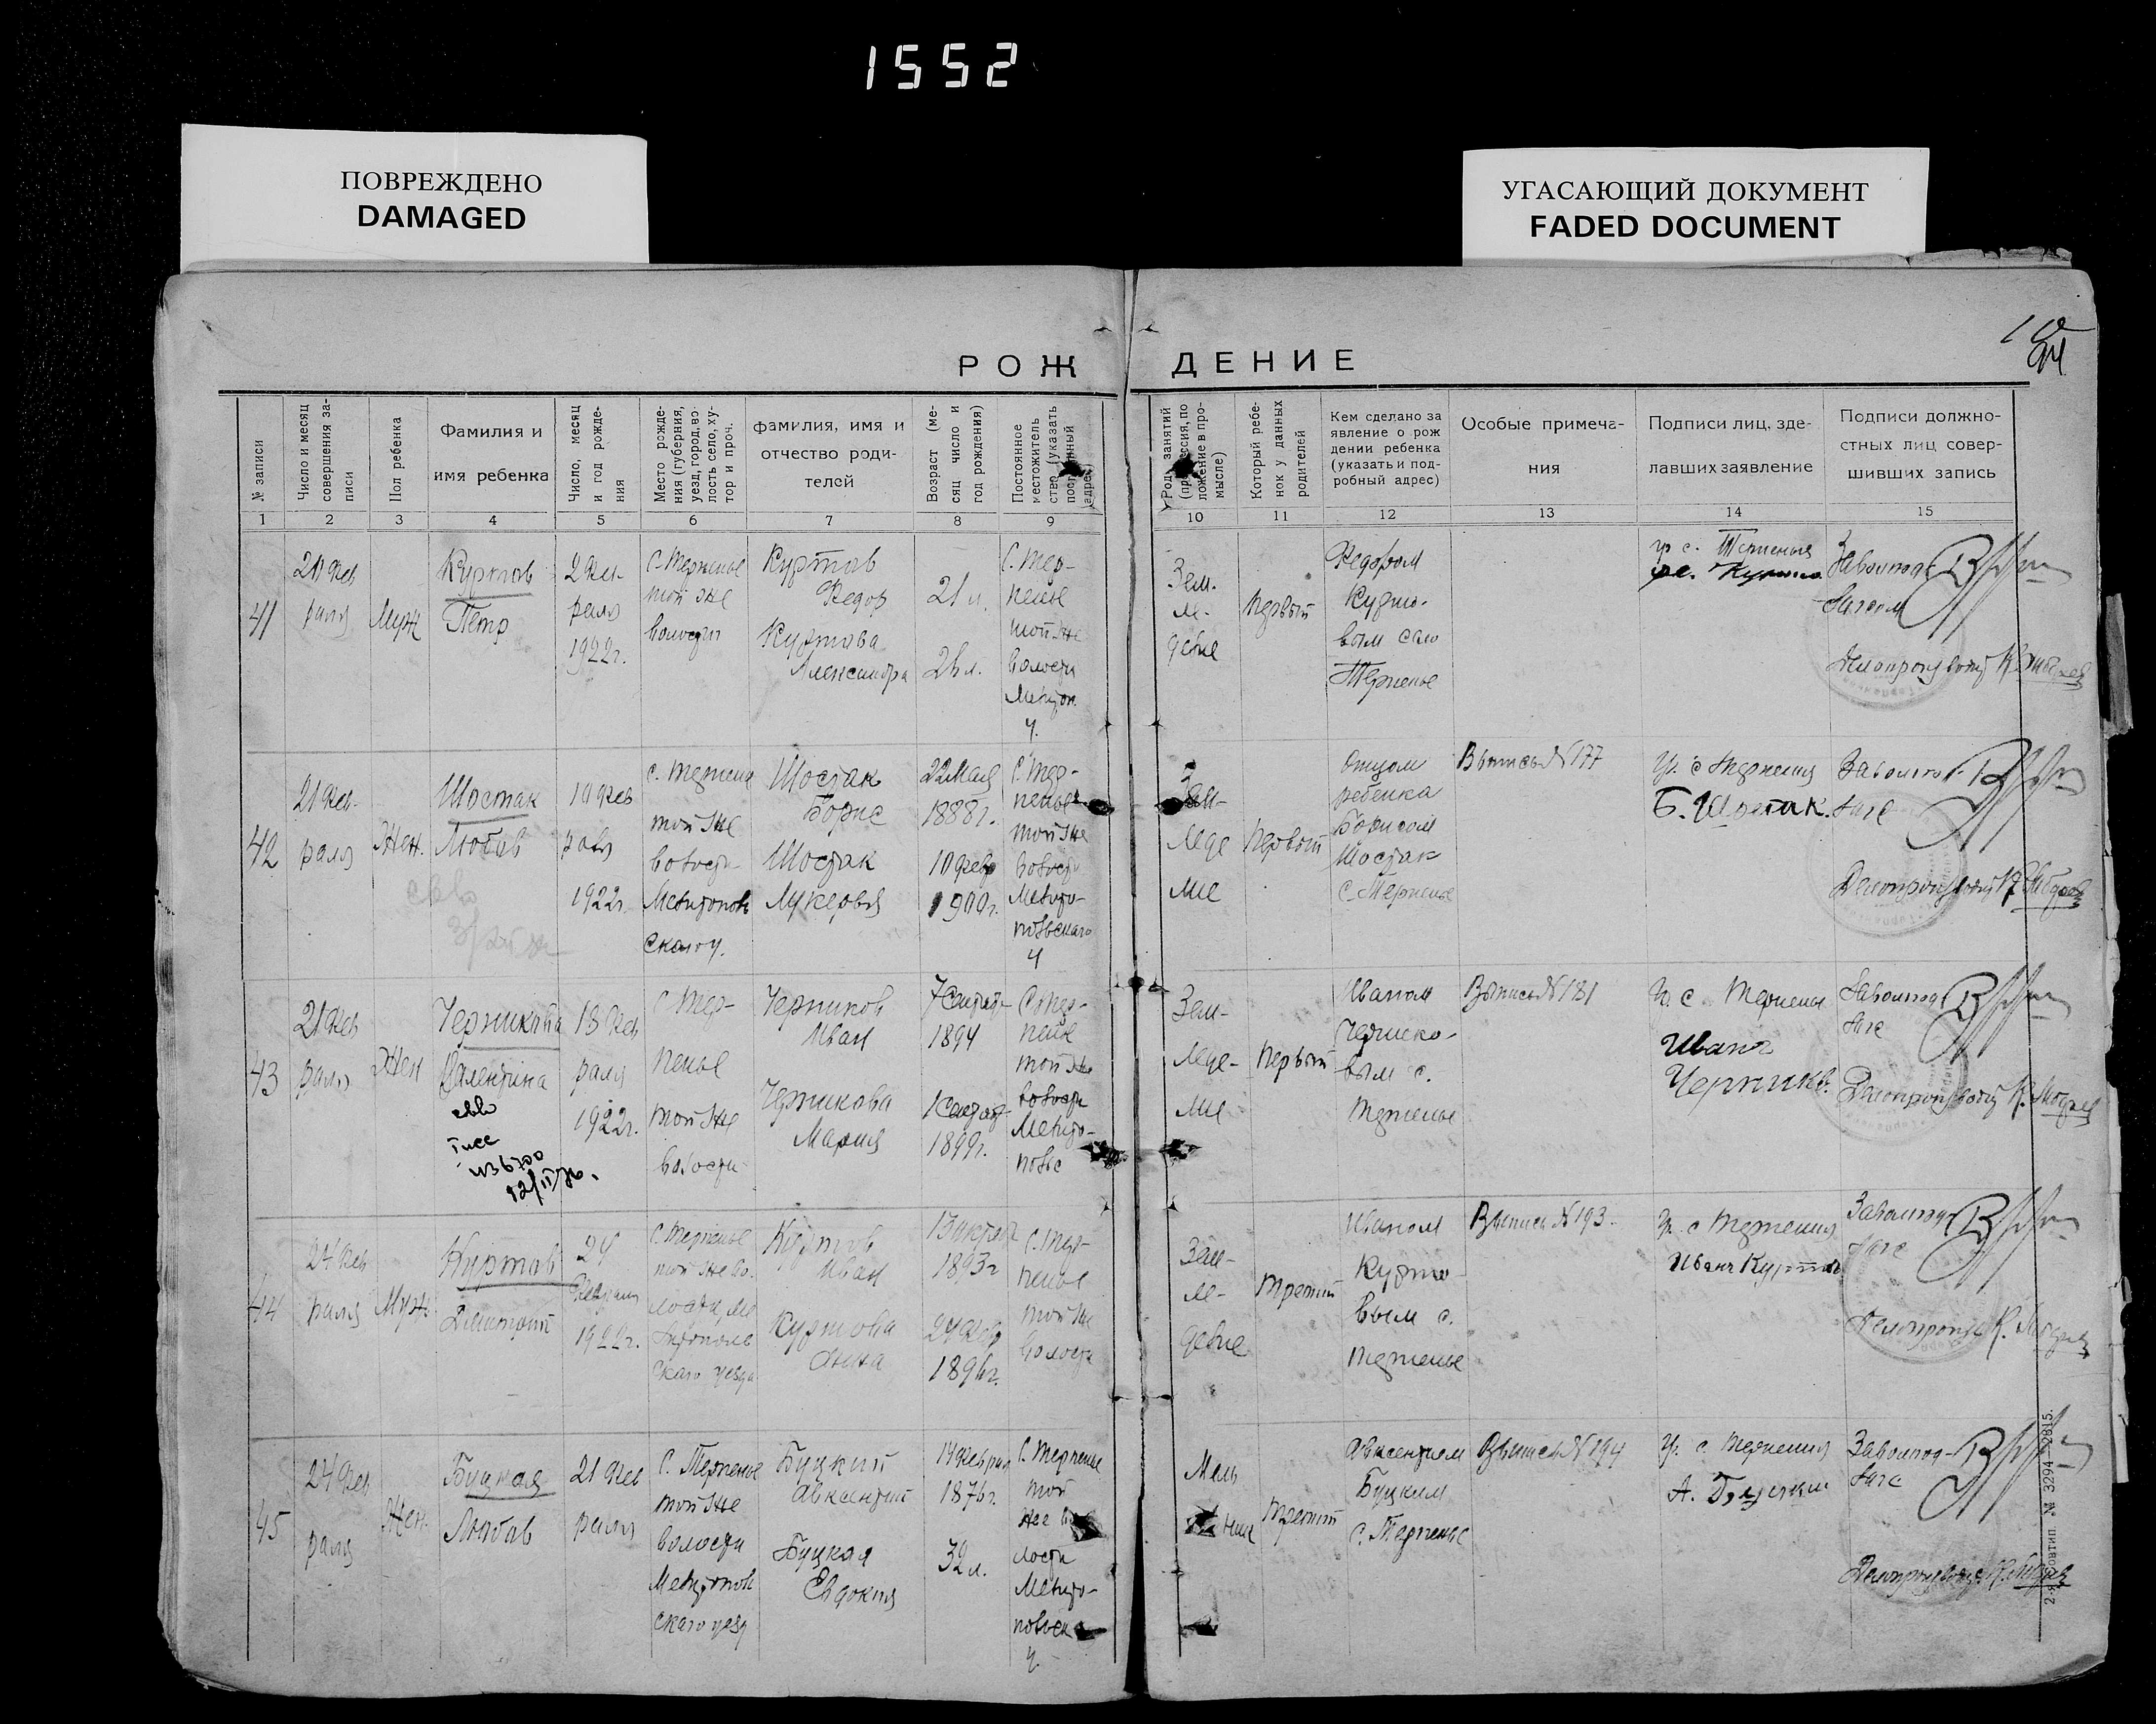 1552
ПОВРЕЖДЕНО
DAMAGED
УГАСАЮЩИЙ ДОКУМЕНТ
FADED DOCUMENT
РОЖДЕНИЕ
№ записи
Число и месяц
совершения за-
писи
Пол ребенка
Фамилия и
имя ребенка
Число, месяц
и год рожде-
ния
Место рожде-
ния (губерния,
уезд, город, во-
лость село, ху-
тор и проч.
фамилия, имя и
отчество роди-
телей
Возраст (ме-
сяц число и
год рождения)
Постоянное
местожитель
ство (указать
адрес)
Род занятий
ложение в про-
мысле)
Который ребе-
нок у данных
родителей
Кем сделано за
явление о рож
дении ребенка
(указать и под-
робный адрес)
Особые примеча-
ния
Подписи лиц, зде-
лавших заявление
Подписи должно-
стных лиц совер-
шивших запись
1 2 3 4 5 6 7 8 9 10 11 12 13 14 15
41
21 фев
раля
Муж
Куртов
Петр
2 фев-
раля
1922г.
с. Терпенье
той же
волости
Куртов
Федор
Куртова
Александра
21 л.
с. Тер-
пенье
той же
волости
Мелитоп.
у.
Зем.
ле-
делие
первый
Федором
Курто-
вым село
Терпенье
гр с. Терпенья
Заволотд
Загсом
Делопроизводит
42
21 фев-
раля
Жен.
Шостак
Любов
10 фев
раля
1922г.
с. Терпенье
той же
волости
Мелитополь
ского у.
Шостак
Борис
Шостак
Лукерья
22 мая
1888г.
10 февр
1900г.
с. Тер-
пенье
той же
волости
Мелито-
польскаго
у
Зем-
леде
лие
первый
отцом
ребенка
Борисом
Шостак
с. Терпенье
Выпись № 177
гр. с Терпения
Б. Шостак.
Загс
Делопроизводит
43
21 фев
раля
Жен
Черникова
Валентина
13 фев
раля
1922г.
с Тер-
пенье
той же
волости
Черников
Иван
Черникова
Мария
7 Сентяб-
1894
1 Сентяб-
1899г.
с Тер-
пенье
той же
волости
Мелито-
польс
Зем-
леде-
лие
первый
Иваном
Чернико-
вым с.
Терпенье
Выпись № 181
гр. с Терпенья
Иванъ
Черников.
Загс
Делопроизводит
44
24 фев
раля
Муж.
Куртов
Димитрий
24
Февраля
1922г.
с. Терпенье
той же во-
лости, Ме
литополь
скаго уезда
Куртов
Иван
Куртова
Анна
1893г
24 февр
1896г.
с. Тер-
пенье
той же
волости
Зем-
ле-
делие
третий
Иваном
Курто-
вым с.
Терпенье
Выпись № 193.
гр. с Терпения
Иванъ Куртов
Загс
Делопроизв
45
24 фев
раля
Жен.
Буцкая
Любов
21 фев
раля
с. Терпенье
той же
волости
Мелитополь
скаго уезд
Буцкий
Авксентий
Буцкая
Евдокия
14 феврал
1876г.
32 л.
с. Терпенье
той
же во
лости
Мелито-
польск
у.
Мель
ник
третий
Авксентием
Буцким
с. Терпенье
Выпись № 194
гр. с. Терпения
А. Буцкий
Загс
Делопроизводит
№ 3294—2815.